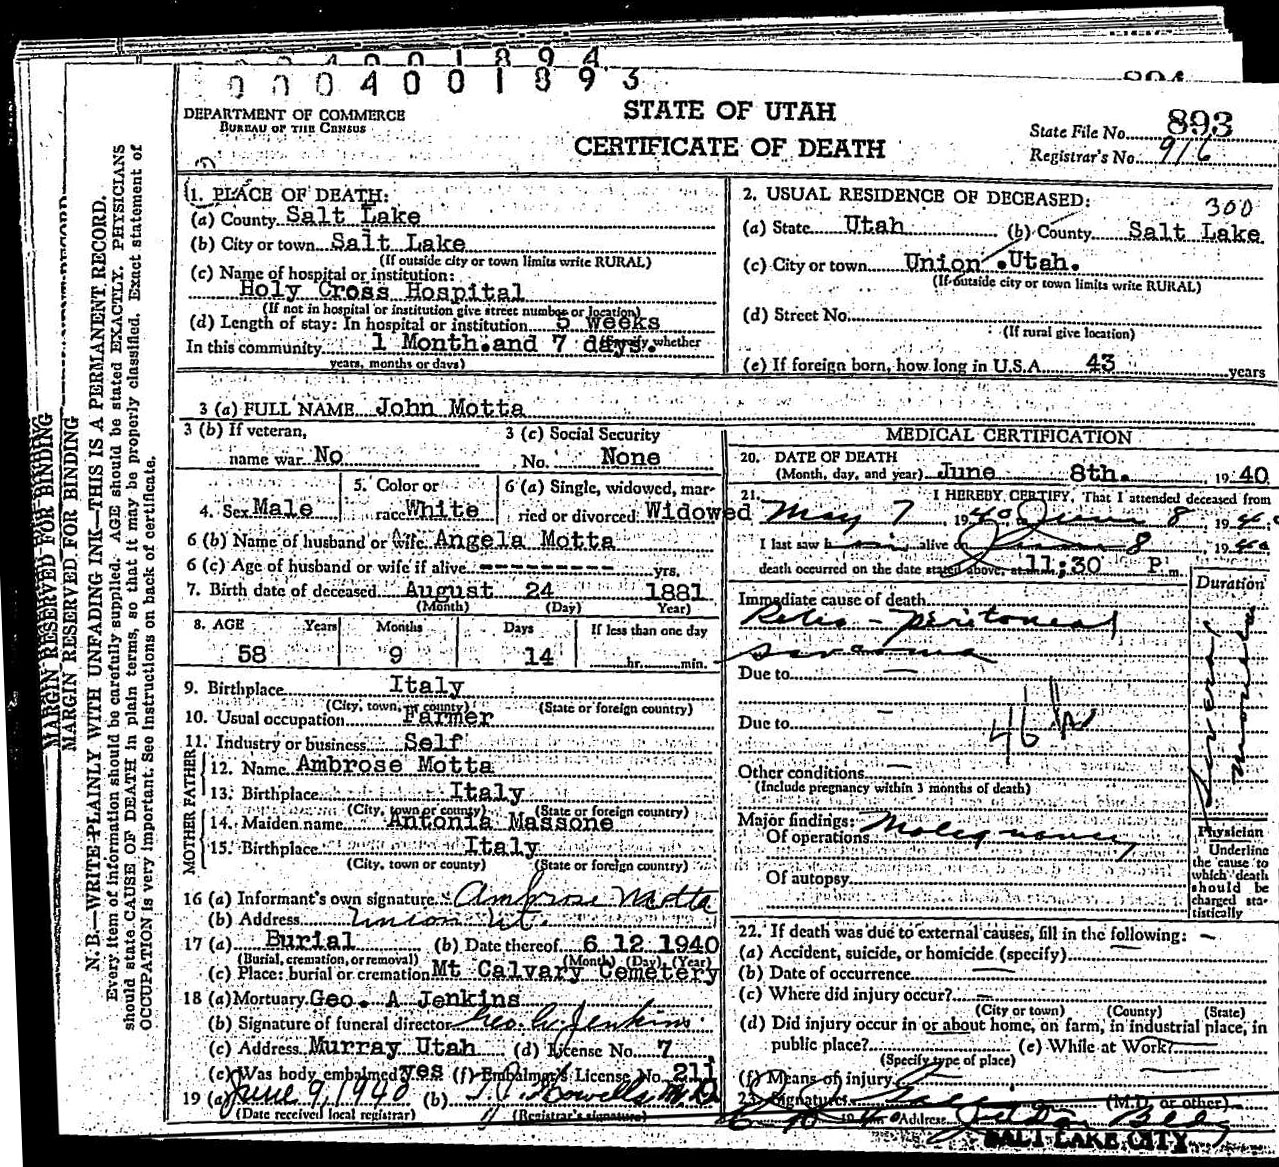 0 0 0 4 0 0 1 8 9 4
0 0 0 4 0 0 1 8 9 3
894
DEPARTMENT OF COMMERCE
BUREAU OF THE CENSUS
STATE OF UTAH
CERTIFICATE OF DEATH
State File No. 893
Registrar's No. 916
MARGIN RESERVED FOR BINDING
MARGIN RESERVED FOR BINDING
N. B.—WRITE PLAINLY WITH UNFADING INK—THIS IS A PERMANENT RECORD.
Every item of information should be carefully supplied. AGE should be stated EXACTLY. PHYSICIANS
should state CAUSE OF DEATH in plain terms, so that it may be properly classified. Exact statement of
OCCUPATION is very important. See instructions on back of certificate.
1. PLACE OF DEATH:
(a) County Salt Lake
(b) City or town Salt Lake
(If outside city or town limits write RURAL)
(c) Name of hospital or institution:
Holy Cross Hospital
(If not in hospital or institution give street number or location)
(d) Length of stay: In hospital or institution 5 weeks
In this community 1 Month.and 7 days. (Specify whether
years, months or days)
2. USUAL RESIDENCE OF DECEASED:
300
(a) State Utah (b) County Salt Lake
(c) City or town Union .Utah.
(If outside city or town limits write RURAL)
(d) Street No.
(If rural give location)
(e) If foreign born, how long in U.S.A. 43 years
3 (a) FULL NAME John Motta
3 (b) If veteran,
name war No
3 (c) Social Security
No. None
4. Sex Male
5. Color or
race White
6 (a) Single, widowed, mar-
ried or divorced Widowed
6 (b) Name of husband or wife Angela Motta
6 (c) Age of husband or wife if alive ---------- yrs.
7. Birth date of deceased August 24 1881
(Month) (Day) Year)
8. AGE Years Months Days If less than one day
58 9 14 hr. min.
9. Birthplace Italy
(City, town, or county) (State or foreign country)
10. Usual occupation Farmer
11. Industry or business Self
FATHER
12. Name Ambrose Motta
13. Birthplace Italy
(City, town or county) (State or foreign country)
MOTHER
14. Maiden name Antonia Massone
15. Birthplace Italy
(City, town or county) (State or foreign country)
16 (a) Informant's own signature Ambrose Motta
(b) Address Union Ut.
17 (a) Burial (b) Date thereof 6 12 1940
(Burial, cremation, or removal) (Month) (Day) (Year)
(c) Place: burial or cremation Mt Calvary Cemetery
18 (a) Mortuary Geo. A Jenkins
(b) Signature of funeral director Geo. A. Jenkins
(c) Address Murray Utah (d) License No. 7
(e) Was body embalmed yes (f) Embalmer's License No. 211
19 (a) June 9, 1940 (b) M.D.
(Date received local registrar) (Registrar's signature)
MEDICAL CERTIFICATION
20. DATE OF DEATH
(Month, day, and year) June 8th. 1940
21. I HEREBY CERTIFY, That I attended deceased from
May 7, 1940 to June 8 1940
I last saw h im alive on June 8, 1940
death occurred on the date stated above, at 11:30 P m.
Duration
Immediate cause of death
Retro-peritoneal
sarcoma
Several months
Due to —
Due to —
46
Other conditions —
(Include pregnancy within 3 months of death)
Major findings:
Of operations Malignancy
Of autopsy
Physician
Underline
the cause to
which death
should be
charged sta-
tistically
22. If death was due to external causes, fill in the following: —
(a) Accident, suicide, or homicide (specify) —
(b) Date of occurrence —
(c) Where did injury occur? —
(City or town) (County) (State)
(d) Did injury occur in or about home, on farm, in industrial place, in
public place? (e) While at Work? —
(Specify type of place)
(f) Means of injury
23. Signatures (M.D. or other)
1940 Address Bldg
SALT LAKE CITY